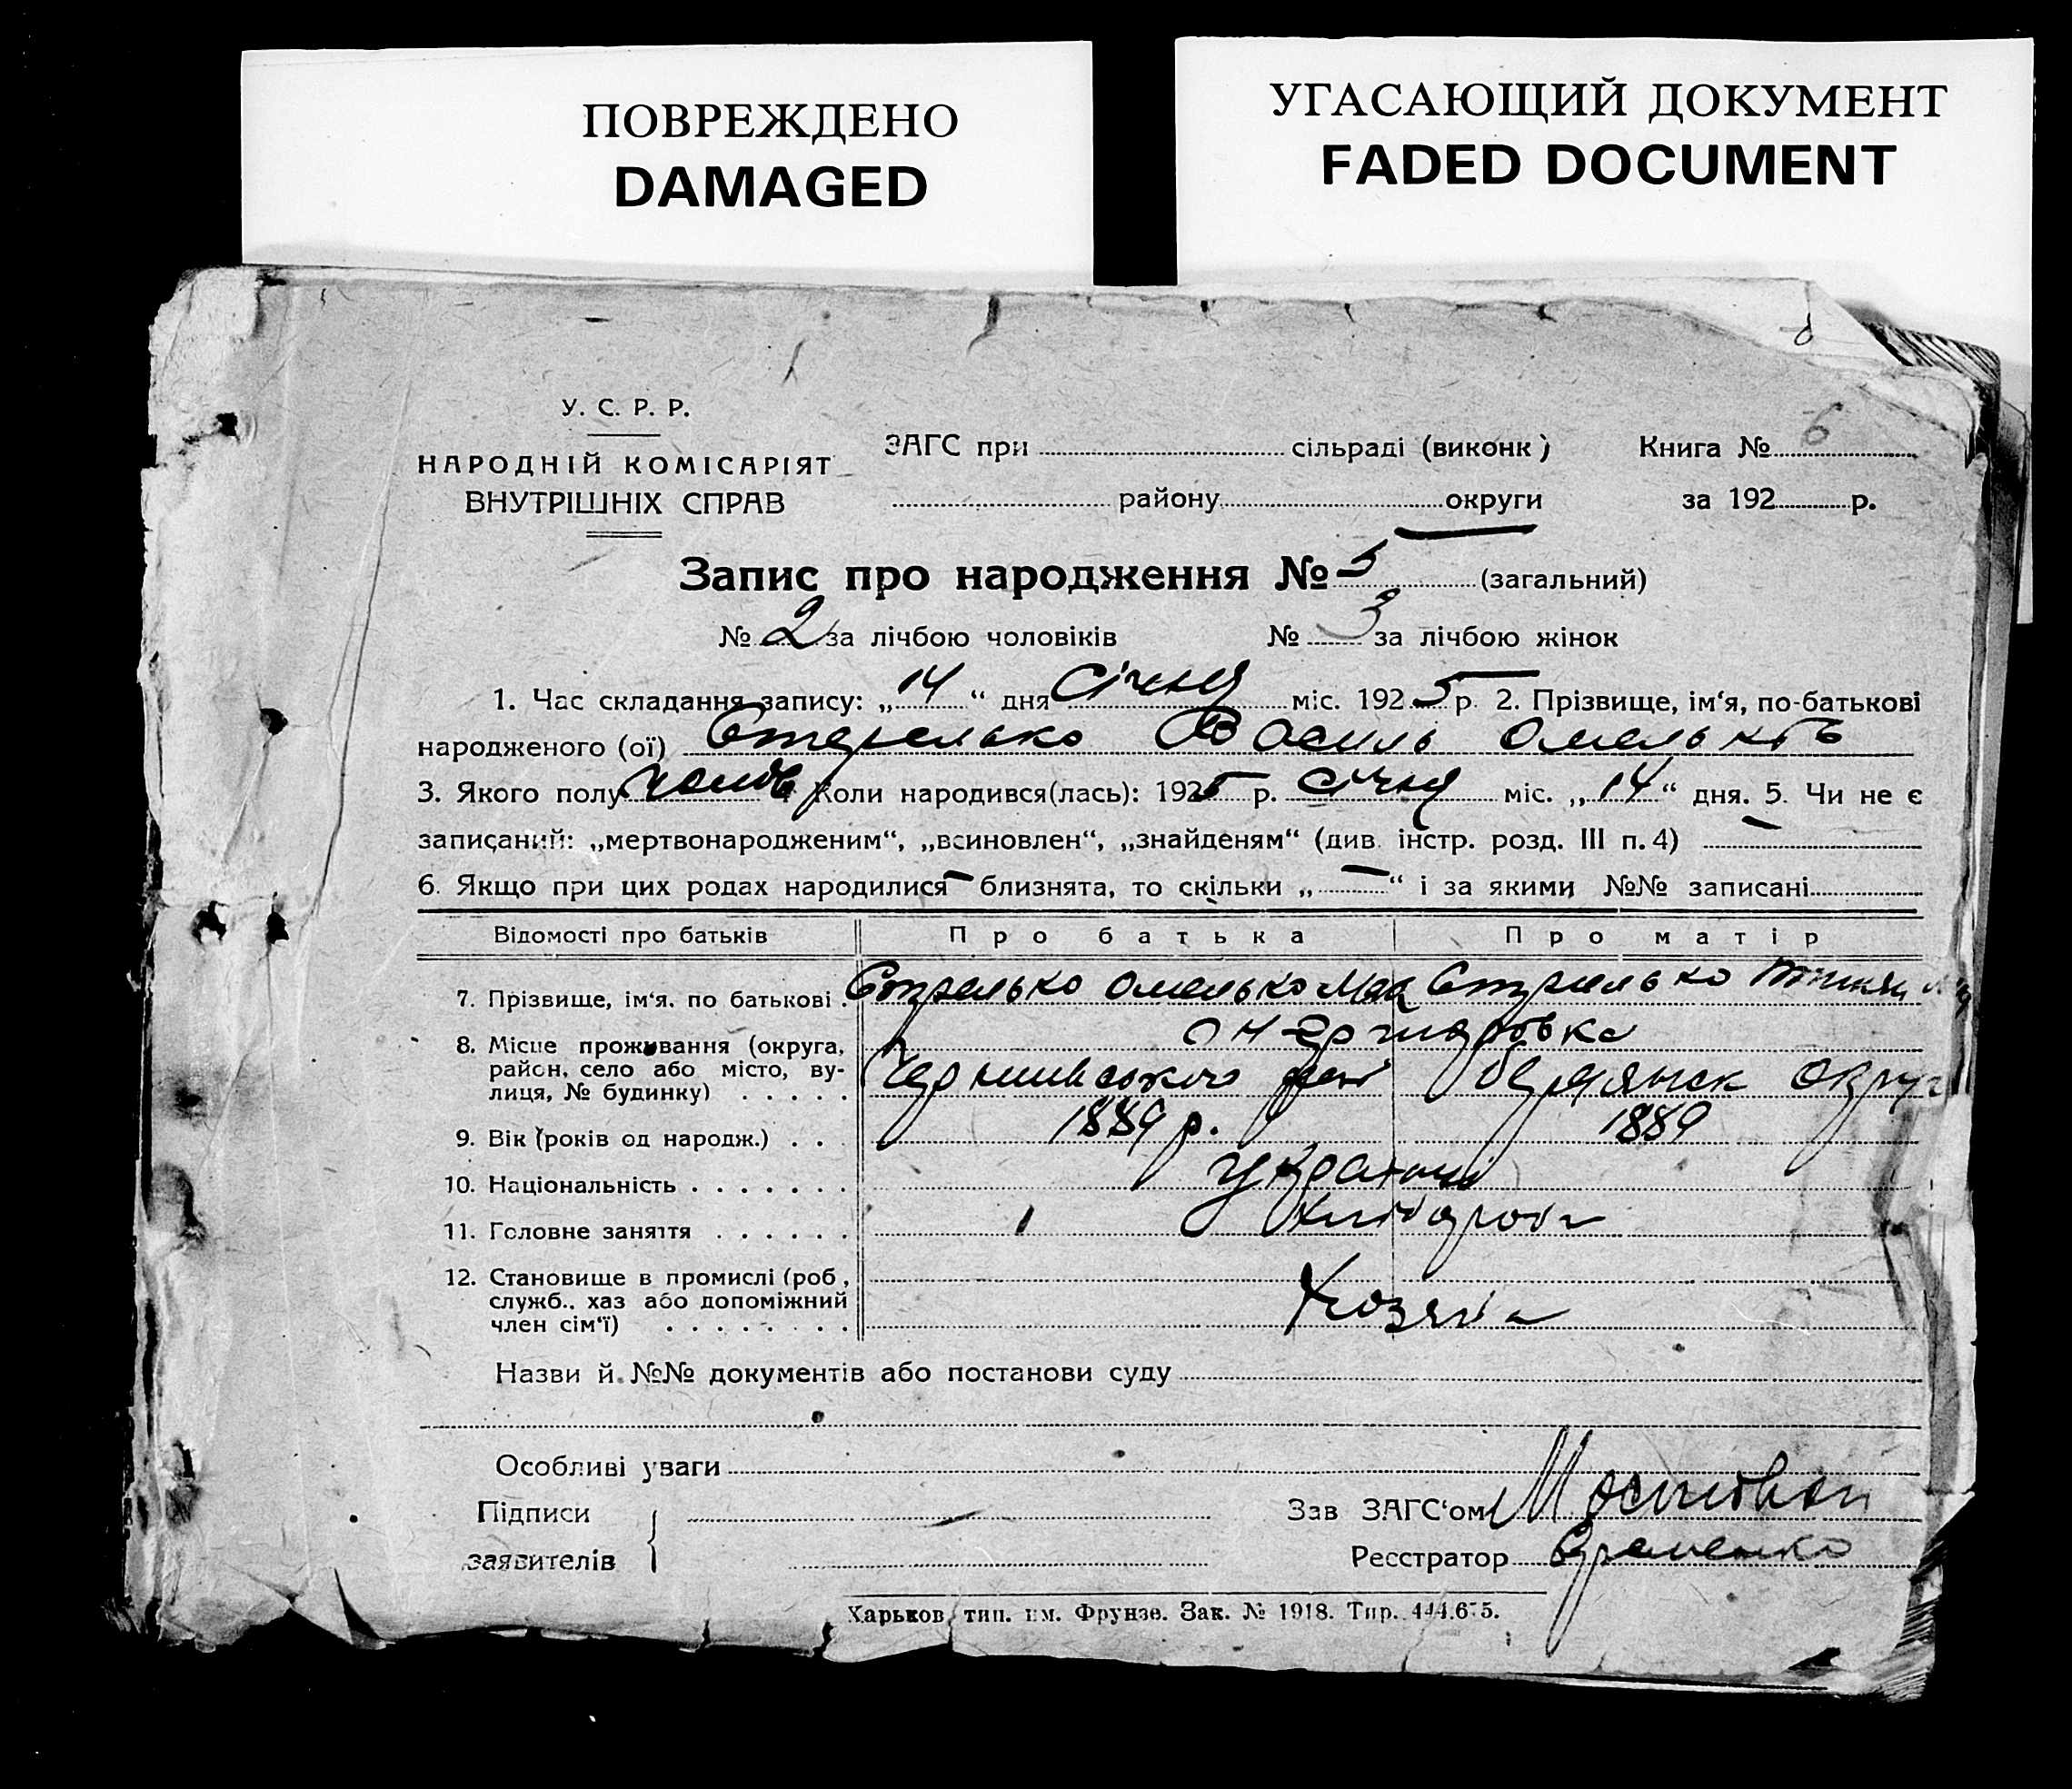 ПОВРЕЖДЕНО
DAMAGED
УГАСАЮЩИЙ ДОКУМЕНТ
FADED DOCUMENT
6
У. С. Р. Р.
НАРОДНІЙ КОМІСАРІЯТ
ВНУТРІШНІХ СПРАВ
ЗАГС при сільраді (виконк)
району округи
Книга №
за 192 р.
Запис про народження № 5 (загальний)
№ 2 за лічбою чоловіків № 3 за лічбою жінок
1. Час складання запису: „14“ дня Січня міс. 1925 р. 2. Прізвище, ім‘я, по-батькові
народженого (ої) Василь
3. Якого полу чолов 4 Коли народився(лась): 1925 р. січня міс. „14“ дня. 5. Чи не є
записаний: „мертвонародженим“, „всиновлен“, „знайденям“ (див. інстр. розд. III п. 4) —
6. Якщо при цих родах народилися — близнята, то скільки „—“ і за якими №№ записані
Відомості про батьків Про батька Про матір
7. Прізвище, ім‘я, по батькові Стрелько Омелько
8. Місце проживання (округа,
район, село або місто, ву-
лиця, № будинку)
9. Вік (років од народж.) 1889 р. 1889
10. Національність
11. Головне заняття
12. Становище в промислі (роб.,
служб., хаз або допоміжний
член сім‘ї)
Назви й №№ документів або постанови суду
Особливі уваги
Підписи
заявителів
Зав ЗАГС‘ом
Реєстратор
Харьков, тип. им. Фрунзе. Зак. № 1918. Тир. 444.675.